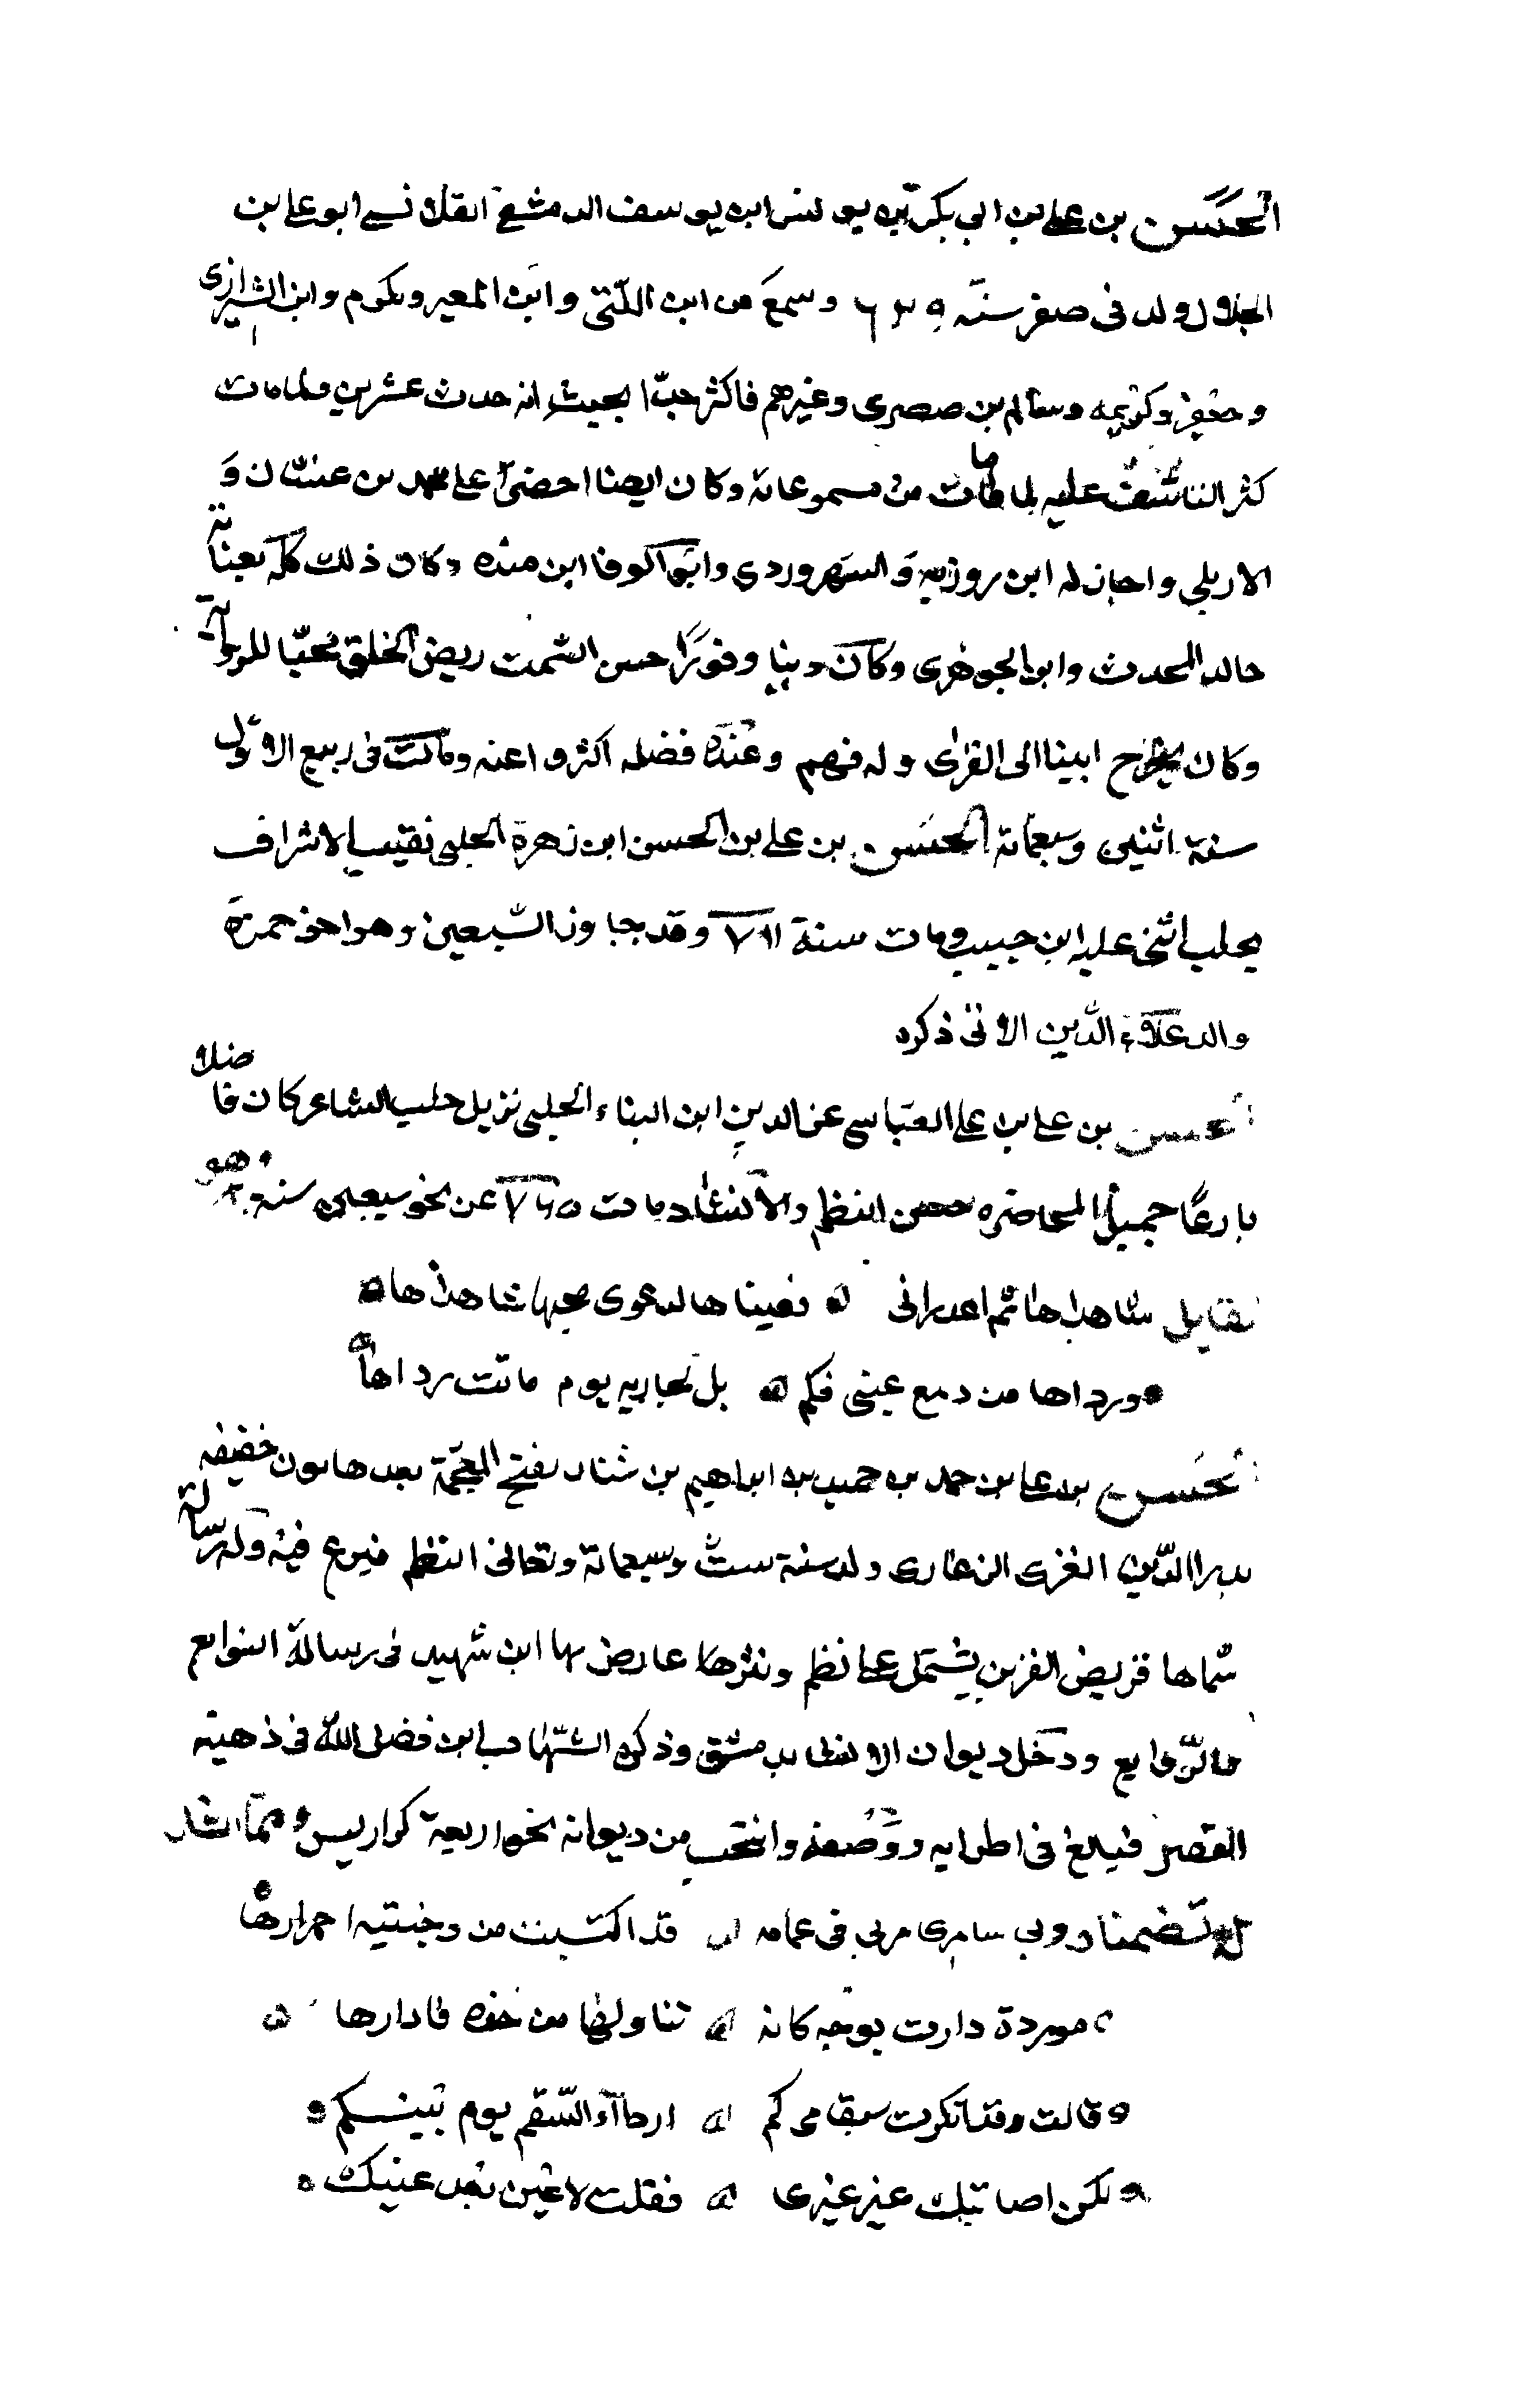 الحسن بن علي بن ابي بكر بن يونس ابن يوسف الدمشقي القلانسي ابو علي بن
الخلال ولد في صفر سنة ٦٢٩ وسمع من ابن اللتي وابن المقير ومكرم وابن الشيرازي
وجعفر وكريمه وسالم بن صصرى وغيرهم فاكثر جدّا بحيث انه حدث عشرين ولما مات
كثر التأسف عليه لما مات من مسموعاته وكان ايضا احضر على محمد بن عسان و
الاربلي واجاز له ابن روزبه والسهروردي وابو الوفا ابن منده وكان ذلك كله بعناية
خاله المحدث وابو الجوهري وكان دينا وقورًا حسن السمت ريض الخلق محبّا للرواية
وكان يخرج ابينا الى القرى وله فهم وعنده فضله اكثروا عنه ومات في ربيع الاول
سنة اثنين وسبعمائة الحسن بن علي بن الحسن ابن زهرة الحلبي نقيب الاشراف
بحلب اثنى عليه ابن حبيب ومات سنة ٧١١ وقد جاوز السبعين وهو اخو حمزة
والد علاء الدين الاتى ذكره
الحسن بن علي بن علي العباسي عز الدين ابن البناء الحلبي نزيل حلب الشاعر كان فاضلا
بارعًا جميل المحاضره حسن النظم والانشاد مات ٧٤٥ عن نحو سبعين سنة وهو
شاهداها ثم اعدراني ه نفينا ها لدعوى محبها شاهداها ه
ه ورداها من دمع عيني فكم ه بل نجاريه يوم ماتت رداها ه
الحسن بن علي بن حمد بن حميد بن ابراهيم بن شنار بفتح المعجمة بعدها نون خفيفه
بدر الدين الغزى الزغارى ولد سنة ست وسبعمائة وتعانى النظم فبرع فيه وله رسالة
سماها قريض القرين يشتمل على نظم ونثرها عارض بها ابن شهيد في رسالة التوابع
والزوابع ودخل ديوان الانشا بدمشق وذكره الشهاب ابن فضل الله في ذهبية
القصر فبالغ في اطرايه ووصفه وانتخب من ديوانه نحو اربعة كراريس ومما انشد
له تضمنا وبي سامرى مر بي في عمامه ه قد اكتسبت من وجنتيه احمرارها ه
ه موردة دارت بوجه كانه ه تناولها من خده فادارها ه
ه قالت وقد انكرت سقامي كم ه ارداء السقم يوم بينكم ه
ه لكن اصابتك عين غيرى ه فقلت لا عين بعد عينك ه